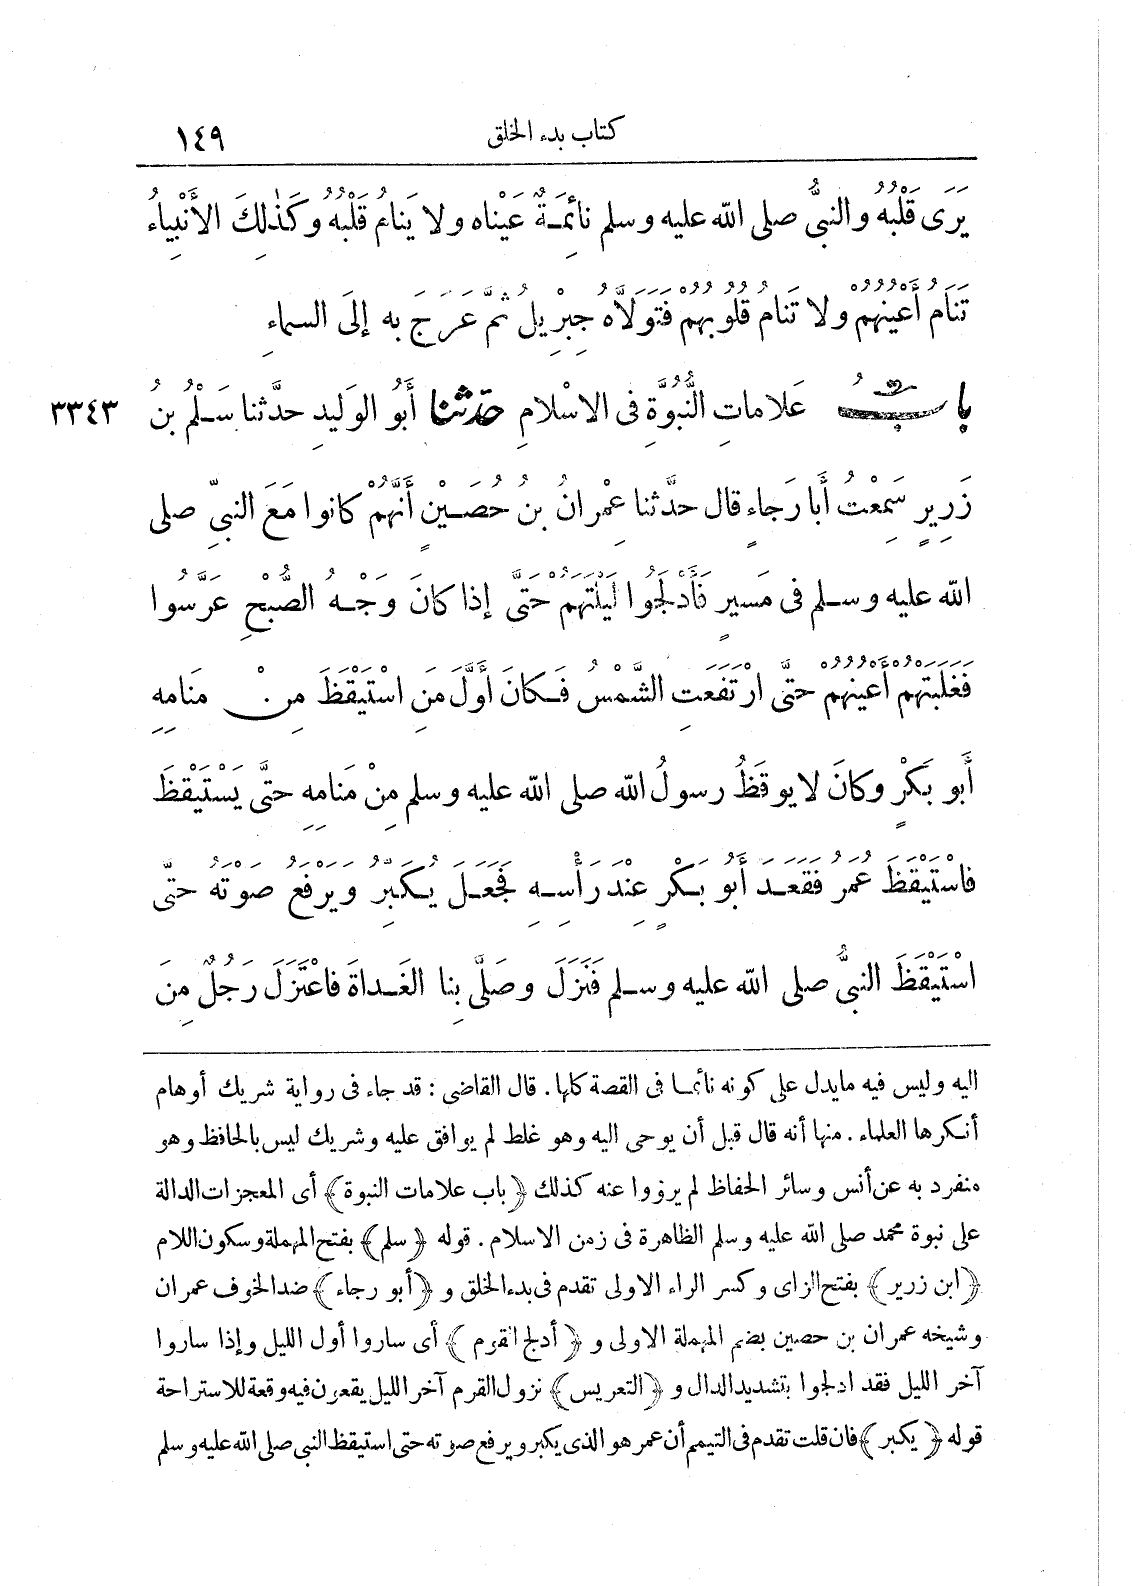 كتاب بدء الخلق ١٤٩
يَرَى قَلْبُهُ والنبىُّ صلى الله عليه وسلم نائِمَةٌ عَيْناه ولا يَنامُ قَلْبُهُ وكَذٰلِكَ الأَنْبِياءُ
تَنامُ أَعْيُنُهُمْ ولا تَنامُ قُلُوبُهُمْ فَتَوَلَّاهُ جِبْرِيلُ ثُمَّ عَرَجَ به إلَى السماءِ
بابُ عَلاماتِ النُّبُوَّةِ فى الاسْلامِ حدّثنا أَبُو الوَلِيدِ حدَّثنا سَلْمُ بنُ ٣٣٤٣
زَرِيرٍ سَمِعْتُ أَبا رَجاءٍ قال حدَّثنا عِمْرانُ بنُ حُصَيْنٍ أَنَّهُمْ كانوا مَعَ النبىِّ صلى
الله عليه وسلم فى مَسيرٍ فَأَدْلَجُوا لَيْلَتَهُمْ حَتَّى إذا كانَ وَجْهُ الصُّبْحِ عَرَّسُوا
فَغَلَبَتْهُمْ أَعْيُنُهُمْ حتَّى ارْتَفَعَتِ الشَّمْسُ فَكانَ أَوَّلَ مَنِ اسْتَيْقَظَ مِنْ مَنامِهِ
أَبو بَكْرٍ وكانَ لايوقَظُ رسولُ الله صلى الله عليه وسلم مِنْ مَنامِهِ حتَّى يَسْتَيْقِظَ
فاسْتَيْقَظَ عُمَرُ فَقَعَدَ أَبُو بَكْرٍ عِنْدَ رَأْسِهِ فَجَعَلَ يُكَبِّرُ ويرفَعُ صَوْتَهُ حتَّى
اسْتَيْقَظَ النبىُّ صلى الله عليه وسلم فَنَزَلَ وصَلَّى بِنا الغَداةَ فاعْتَزَلَ رَجُلٌ مِنَ
اليه وليس فيه مايدل على كونه نائما فى القصة كلها. قال القاضى: قد جاء فى رواية شريك أوهام
أنكرها العلماء. منها أنه قال قبل أن يوحى اليه وهو غلط لم يوافق عليه وشريك ليس بالحافظ وهو
منفرد به عن أنس وسائر الحفاظ لم يرؤوا عنه كذلك ﴿باب علامات النبوة﴾ أى المعجزات الدالة
على نبوة محمد صلى الله عليه وسلم الظاهرة فى زمن الاسلام. قوله ﴿سلم﴾ بفتح المهملة وسكون اللام
﴿ابن زرير﴾ بفتح الزاى وكسر الراء الاولى تقدم فى بدء الخلق و﴿أبو رجاء﴾ ضد الخوف عمران
وشيخه عمران بن حصين بضم المهملة الاولى و﴿أدلج القوم﴾ أى ساروا أول الليل وإذا ساروا
آخر الليل فقد ادلجوا بتشديد الدال و﴿التعريس﴾ نزول القوم آخر الليل يقعون فيه وقعة للاستراحة
قوله ﴿يكبر﴾ فان قلت تقدم فى التيمم أن عمر هو الذى يكبر ويرفع صوته حتى استيقظ النبى صلى الله عليه وسلم